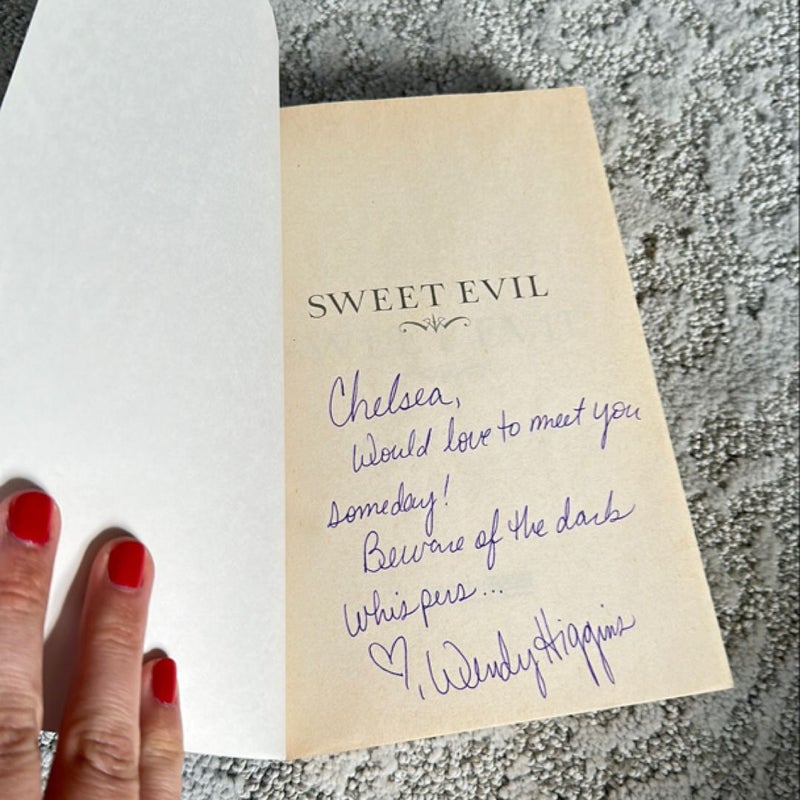 SWEET EVIL
Chelsea,
Would love to meet you
someday!
Beware of the dark
whispers...
♡, Wendy Higgins